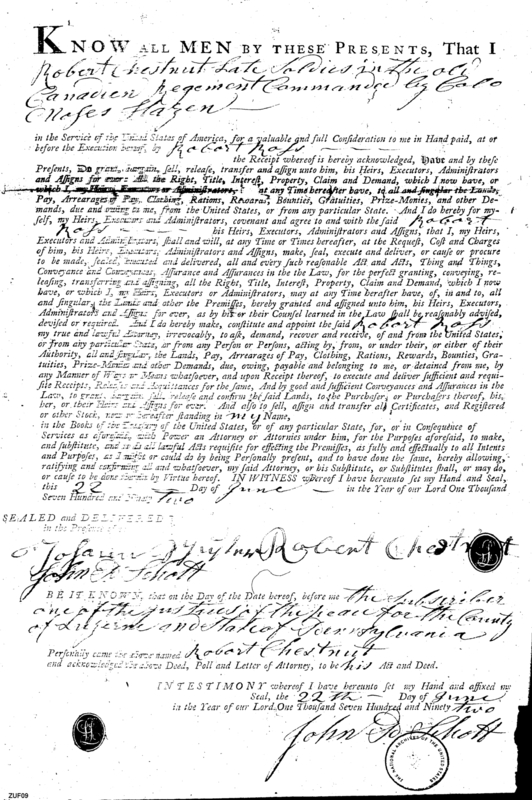 KNOW ALL MEN BY THESE PRESENTS, That I
Robert Chestnut Late Soldier in the old
Canadien Regement Commanded by Colo
Moses Hazen
in the Service of the United States of America, for a valuable and full Consideration to me in Hand paid, at or
before the Execution hereof, by Robert Ross
the Receipt whereof is hereby acknowledged, Have and by these
Presents, Do grant, bargain, sell, release, transfer and assign unto him, his Heirs, Executors, Administrators
and Assigns for ever: All the Right, Title, Interest, Property, Claim and Demand, which I now have, or
which I, my Heirs, Executors or Administrators, at any Time hereafter have, to all and singular the Lands,
Pay, Arrearages of Pay, Clothing, Rations, Rewards, Bounties, Gratuities, Prize-Monies, and other De-
mands, due and owing to me, from the United States, or from any particular State. And I do hereby for my-
self, my Heirs, Executors and Administrators, covenant and agree to and with the said Robert
Ross his Heirs, Executors, Administrators and Assigns, that I, my Heirs,
Executors and Administrators, shall and will, at any Time or Times hereafter, at the Request, Cost and Charges
of him, his Heirs, Executors, Administrators and Assigns, make, seal, execute and deliver, or cause or procure
to be made, sealed, executed and delivered, all and every such reasonable Act and Acts, Thing and Things,
Conveyance and Conveyances, Assurance and Assurances in the the Law, for the perfect granting, conveying, re-
leasing, transferring and assigning, all the Right, Title, Interest, Property, Claim and Demand, which I now
have, or which I, my Heirs, Executors or Administrators, may at any Time hereafter have, of, in and to, all
and singular, the Lands and other the Premises, hereby granted and assigned unto him, his Heirs, Executors,
Administrators and Assigns for ever, as by his or their Counsel learned in the Law shall be reasonably advised,
devised or required. And I do hereby make, constitute and appoint the said Robert Ross
my true and lawful Attorney, irrevocably, to ask, demand, recover and receive, of and from the United States,
or from any particular State, or from any Person or Persons, acting by, from, or under their, or either of their
Authority, all and singular, the Lands, Pay, Arrearages of Pay, Clothing, Rations, Rewards, Bounties, Gra-
tuities, Prize-Monies and other Demands, due, owing, payable and belonging to me, or detained from me, by
any Manner of Ways or Means whatsoever, and upon Receipt thereof, to execute and deliver sufficient and requi-
site Receipts, Releases and Acquittances for the same. And by good and sufficient Conveyances and Assurances in the
Law, to grant, bargain, sell, release and confirm the said Lands, to the Purchaser, or Purchasers thereof, his,
her, or their Heirs and Assigns for ever. And also to sell, assign and transfer all Certificates, and Registered
or other Stock, now or hereafter standing in my Name,
in the Books of the Treasury of the United States, or of any particular State, for, or in Consequence of
Services as aforesaid, with Power an Attorney or Attornies under him, for the Purposes aforesaid, to make,
and substitute, and to do all lawful Acts requisite for effecting the Premises, as fully and effectually to all Intents
and Purposes, as I might or could do by being Personally present, and to have done the same, hereby allowing,
ratifying and confirming all and whatsoever, my said Attorney, or his Substitute, or Substitutes shall, or may do,
or cause to be done therein by Virtue hereof. IN WITNESS whereof I have hereunto set my Hand and Seal,
this 22 Day of June in the Year of our Lord One Thousand
Seven Hundred and Ninety two
SEALED and DELIVERED
in the Presence of
Robert Chestnut
John P. Schott
BE IT KNOWN, that on the Day of the Date hereof, before me the subscriber
one of the justices of the peace for the County
of Luzerne and State of Pennsylvania
Personally came the above named Robert Chestnut
and acknowledged the above Deed, Poll and Letter of Attorney, to be his Act and Deed.
IN TESTIMONY whereof I have hereunto set my Hand and affixed my
Seal, the 22th Day of June
in the Year of our Lord One Thousand Seven Hundred and Ninety two
John P. Schott
THE NATIONAL ARCHIVES OF THE UNITED STATES
ZUF09